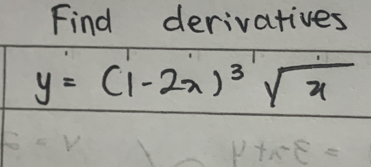 Find derivatives
y = (1-2x)³ √x